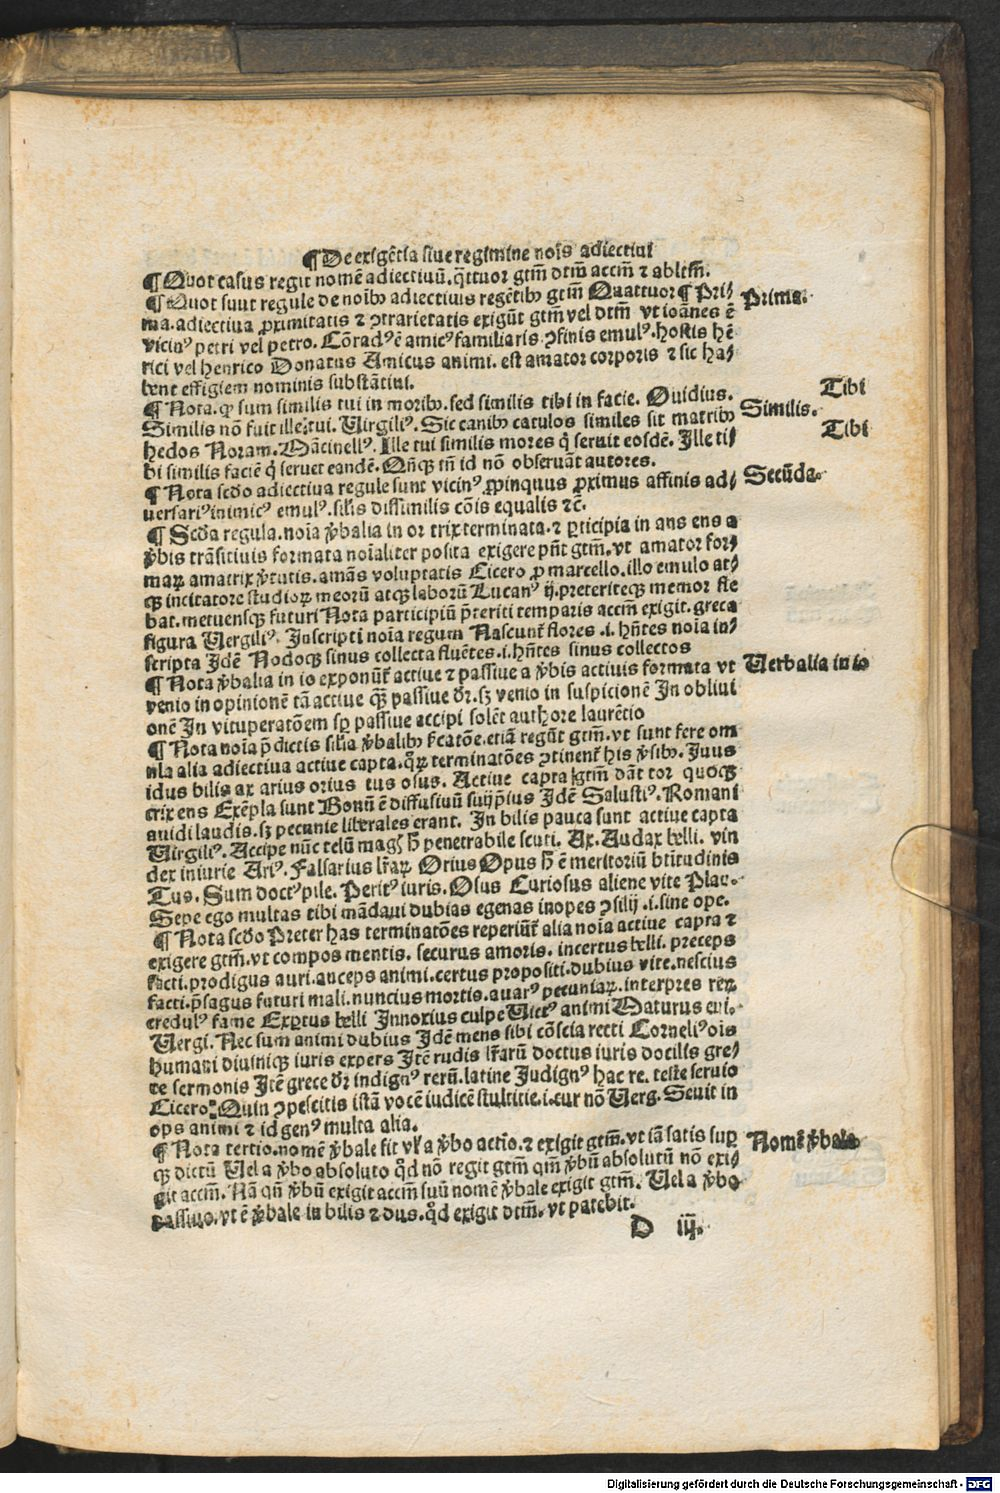 ¶ De exigētia siue regimine nois adiectiui
¶ Quot casus regit nomē adiectiuū. q̄ttuor gtm̄ dtm̄ accm̄ ⁊ abltm̄.
¶ Quot sunt regule de noib⁹ adiectiuis regētib⁹ gtm̄ Quattuor ¶ Pri⸗
Prima.
ma. adiectiua ꝓximitatis ⁊ ꝯtrarietatis exigūt gtm̄ vel dtm̄ vt ioānes ē
vicin⁹ petri vel petro. Cōrad⁹ ē amic⁹ familiaris ꝯfinis emul⁹. hostis hē
rici vel henrico Donatus Amicus animi. est amator corporis ⁊ sic ha⸗
bent effigiem nominis substātiui.
Tibi
¶ Nota. ꝙ sum similis tui in morib⁹. sed similis tibi in facie. Ouidius.
Similis.
Similis nō fuit ille: tui. Uirgili⁹. Sic canib⁹ catulos similes sic matrib⁹
Tibi
hedos Noram. Mācinell⁹. Ille tui similis mores q̄ seruit eosdē. Ille ti⸗
bi similis faciē q̄ seruet eandē. Qn̄qꝫ tn̄ id nō obseruāt autores.
Secūda.
¶ Nota scd̄o adiectiua regule sunt vicin⁹ ꝓpinquus ꝓximus affinis ad⸗
uersari⁹ inimic⁹ emul⁹. silis dissimilis cōis equalis ⁊c̄.
¶ Scd̄a regula. noīa v̄balia in or trix terminata. ⁊ ꝑticipia in ans ens a
v̄bis trāsitiuis formata noīaliter posita exigere pn̄t gtm̄. vt amator for⸗
maꝝ amatrix v̄tutis. amās voluptatis Cicero ꝓ marcello. illo emulo at⸗
qꝫ incitatore studioꝝ meorū atqꝫ laborū Lucan⁹ ij. preteriteqꝫ memor fle
bat. metuensqꝫ futuri Nota participiū p̄teriti temparis accm̄ exigit. greca
figura Uergili⁹. Inscripti noīa regum Nascunt̄ flores .i. hn̄tes noīa in⸗
scripta Idē Nodoqꝫ sinus collecta fluētes .i. hn̄tes sinus collectos
Uerbalia in io
¶ Nota v̄balia in io exponūt̄ actiue ⁊ passiue a v̄bis actiuis formata vt
venio in opinionē tā actiue qꝫ passiue dr̄. sꝫ venio in suspicionē In obliui
onē In vituperatōem sꝑ passiue accipi solēt authore laurētio
¶ Nota noīa p̄dictis silia v̄balib⁹ etiā regūt gtm̄. vt sunt fere om
nia alia adiectiua actiue capta. qꝝ terminatōes ꝯtinent̄ his v̄sib⁹. Iuus
idus bilis ax arius orius tus osus. Actiue capta gtm̄ dāt tor quoqꝫ
trix ens Exēpla sunt Bonū ē diffusiuū suijp̄ius Idē Salusti⁹. Romani
auidi laudis. sꝫ pecunie liberales erant. In bilis pauca sunt actiue capta
Uirgili⁹. Accipe nūc telū magꝭ h̄ penetrabile scuti. Ax. Audax belli. vin
dex iniurie Ari⁹. Falsarius lr̄aꝝ Orius Opus h̄ ē meritoriū btitudinis
Tus. Sum doct⁹ pile. Perit⁹ iuris. Osus Curiosus aliene vite Plau⸗
Sepe ego multas tibi mādaui dubias egenas inopes ꝯsilij .i. sine ope.
¶ Nota scd̄o Preter has terminatōes reperiūt̄ alia noīa actiue capta ⁊
exigere gtm̄. vt compos mentis. securus amoris. incertus belli. preceps
facti. prodigus auri. auceps animi. certus propositi. dubius vite. nescius
facti. p̄sagus futuri mali. nuncius mortis. auar⁹ pecuniaꝝ. interpres reꝝ
credul⁹ fame Exꝑtus belli Innoxius culpe Uict⁹ animi Maturus eui.
Uergi. Nec sum animi dubius Idē mens sibi cōscia recti Corneli⁹ oīs
humani diuiniqꝫ iuris expers Itē rudis lr̄arū doctus iuris docilis gre⸗
ce sermonis Itē grece dr̄ indign⁹ rerū. latine Indign⁹ hac re. teste seruio
Cicero. Quin ꝯpescitis istā vocē iudicē stultitie .i. cur nō Uerg. Seuit in
ops animi ⁊ id gen⁹ multa alia.
Nomē v̄bale
¶ Nota tertio. nomē v̄bale fit vl̄ a v̄bo actio. ⁊ exigit gtm̄. vt iā satis suꝑ
qꝫ dictū Uel a v̄bo absoluto qd̄ nō regit gtm̄ qm̄ v̄bū absolutū nō exi⸗
git accm̄. Nā qn̄ v̄bū exigit accm̄ suū nomē v̄bale exigit gtm̄. Uel a v̄bo
passiuo. vt ē v̄bale in bilis ⁊ dus. qd̄ exigit dtm̄. vt patebit.
D iij.
Digitalisierung gefördert durch die Deutsche Forschungsgemeinschaft - DFG